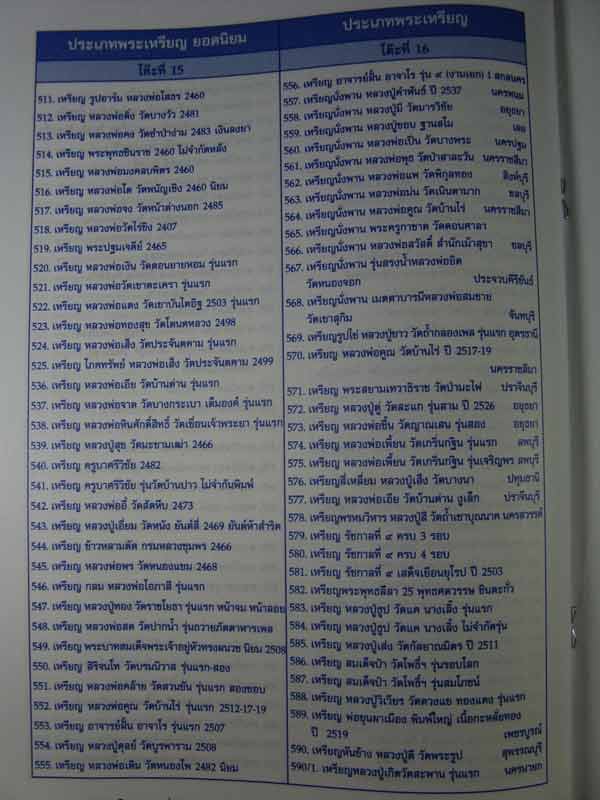 ประเภทพระเหรียญ ยอดนิยม
โต๊ะที่ 15
511. เหรียญ รูปอาร์ม หลวงพ่อโสธร 2460
512. เหรียญ หลวงพ่อดิ่ง วัดบางวัว 2481
513. เหรียญ หลวงพ่อคง วัดซำป่าง่าม 2483 เงินลงยา
514. เหรียญ พระพุทธชินราช 2460 ไม่จำกัดหลัง
515. เหรียญ หลวงพ่อมงคลบพิตร 2460
516. เหรียญ หลวงพ่อโต วัดพนัญเชิง 2460 นิยม
517. เหรียญ หลวงพ่อจง วัดหน้าต่างนอก 2485
518. เหรียญ หลวงพ่อวัดไร่ขิง 2467
519. เหรียญ พระปฐมเจดีย์ 2465
520. เหรียญ หลวงพ่อเงิน วัดดอนยายหอม รุ่นแรก
521. เหรียญ หลวงพ่อวัดเขาตะเครา รุ่นแรก
522. เหรียญ หลวงพ่อแดง วัดเขาบันไดอิฐ 2503 รุ่นแรก
523. เหรียญ หลวงพ่อทองสุข วัดโตนดหลวง 2498
524. เหรียญ หลวงพ่อเส็ง วัดประจันตคาม รุ่นแรก
525. เหรียญ โภคทรัพย์ หลวงพ่อเส็ง วัดประจันตคาม 2499
536. เหรียญ หลวงพ่อเอีย วัดบ้านด่าน รุ่นแรก
537. เหรียญ หลวงพ่อจาด วัดบางกระเบา เต็มองค์ รุ่นแรก
538. เหรียญ หลวงพ่อหินศักดิ์สิทธิ์ วัดเขื่อนเจ้าพระยา รุ่นแรก
539. เหรียญ หลวงปู่สุข วัดมะขามเฒ่า 2466
540. เหรียญ ครูบาศรีวิชัย 2482
541. เหรียญ ครูบาศรีวิชัย รุ่นวัดบ้านปาง ไม่จำกันพิมพ์
542. เหรียญ หลวงพ่ออี๋ วัดสัตหีบ 2473
543. เหรียญ หลวงปู่เอี่ยม วัดหนัง ยันต์สี่ 2469 ยันต์ห้าสำริด
544. เหรียญ ข้าวหลามตัด กรมหลวงชุมพร 2466
545. เหรียญ หลวงพ่อพร วัดหนองแขม 2468
546. เหรียญ กลม หลวงพ่อโอภาสี รุ่นแรก
547. เหรียญ หลวงปู่ทอง วัดราชโยธา รุ่นแรก หน้าจม หน้าลอย
548. เหรียญ หลวงพ่อสด วัดปากน้ำ รุ่นถวายภัตตาหารเพล
549. เหรียญ พระบาทสมเด็จพระเจ้าอยู่หัวทรงผนวช นิยม 2508
550. เหรียญ สิรินจนโท วัดบรมนิวาส รุ่นแรก-สอง
551. เหรียญ หลวงพ่อคล้าย วัดสวนขัน รุ่นแรก สองขอบ
552. เหรียญ หลวงพ่อคูณ วัดบ้านไร่ รุ่นแรก 2512-17-19
553. เหรียญ อาจารย์ฝั้น อาจาโร รุ่นแรก 2507
554. เหรียญ หลวงปู่ดุลย์ วัดบูรพาราม 2508
555. เหรียญ หลวงพ่อเดิม วัดหนองโพ 2482 นิยม
ประเภทพระเหรียญ
โต๊ะที่ 16
556. เหรียญ อาจารย์ฝั้น อาจาโร รุ่น ๙ (งานเอก) สกลนคร
557. เหรียญนั่งพาน หลวงปู่คำพันธ์ ปี 2537 นครพนม
558. เหรียญนั่งพาน หลวงปู่มี วัดมารวิชัย อยุธยา
559. เหรียญนั่งพาน หลวงปู่ชอบ ฐานสโม เลย
560. เหรียญนั่งพาน หลวงพ่อเปิ่น วัดบางพระ นครปฐม
561. เหรียญนั่งพาน หลวงพ่อพุธ วัดป่าสาละวัน นครราชสีมา
562. เหรียญนั่งพาน หลวงพ่อแพ วัดพิกุลทอง สิงห์บุรี
563. เหรียญนั่งพาน หลวงพ่อม่น วัดเนินตามาก ชลบุรี
564. เหรียญนั่งพาน หลวงพ่อคูณ วัดบ้านไร่ นครราชสีมา
565. เหรียญนั่งพาน พระครูกาชาด วัดดอนศาลา
566. เหรียญนั่งพาน หลวงพ่อสวัสดิ์ สำนักเม้าสุขา ชลบุรี
567. เหรียญนั่งพาน รุ่นสรงน้ำหลวงพ่อยิด
วัดหนองจอก ประจวบคีรีขันธ์
568. เหรียญนั่งพาน เมตตาบารมีหลวงพ่อสมชาย
วัดเขาสุกิม จันทบุรี
569. เหรียญรูปไข่ หลวงปู่ขาว วัดถ้ำกลองเพล รุ่นแรก อุดรธานี
570. เหรียญ หลวงพ่อคูณ วัดบ้านไร่ ปี 2517-19
นครราชสีมา
571. เหรียญ พระสยามเทวาธิราช วัดป่ามะไฟ ปราจีนบุรี
572. เหรียญ หลวงปู่ดู่ วัดสะแก รุ่นสาม ปี 2526 อยุธยา
573. เหรียญ หลวงพ่อชื้น วัดญาณเสน รุ่นสอง อยุธยา
574. เหรียญ หลวงพ่อเพี้ยน วัดเกริ่นกฐิน รุ่นแรก ลพบุรี
575. เหรียญ หลวงพ่อเพี้ยน วัดเกริ่นกฐิน รุ่นเจริญพร ลพบุรี
576. เหรียญสี่เหลี่ยม หลวงปู่เส็ง วัดบางนา ปทุมธานี
577. เหรียญ หลวงพ่อเอีย วัดบ้านด่าน งูเล็ก ปราจีนบุรี
578. เหรียญพรหมวิหาร หลวงปู่สี วัดถ้ำเขาบุณนาค นครสวรรค์
579. เหรียญ รัชกาลที่ ๙ ครบ 3 รอบ
580. เหรียญ รัชกาลที่ ๙ ครบ 4 รอบ
581. เหรียญ รัชกาลที่ ๙ เสด็จเยือนยุโรป ปี 2503
582. เหรียญพระพุทธลีลา 25 พุทธศตวรรษ ชินตะกั่ว
583. เหรียญ หลวงปู่ธูป วัดแค นางเลิ้ง รุ่นแรก
584. เหรียญ หลวงปู่ธูป วัดแค นางเลิ้ง ไม่จำกัดรุ่น
585. เหรียญ หลวงปู่เส่ง วัดกัลยาณมิตร ปี 2511
586. เหรียญ สมเด็จป๋า วัดโพธิ์ฯ รุ่นรอบโลก
587. เหรียญ สมเด็จป๋า วัดโพธิ์ฯ รุ่นสมโภชน์
588. เหรียญ หลวงปู่วิเวียร วัดดวงแข ทองแดง รุ่นแรก
589. เหรียญ พ่อขุนผาเมือง พิมพ์ใหญ่ เนื้อกะหลั่ยทอง
ปี 2519 เพชรบูรณ์
590. เหรียญหันข้าง หลวงปู่ดี วัดพระรูป สุพรรณบุรี
590/1. เหรียญหลวงปู่เกิดวัดสะพาน รุ่นแรก นครนายก